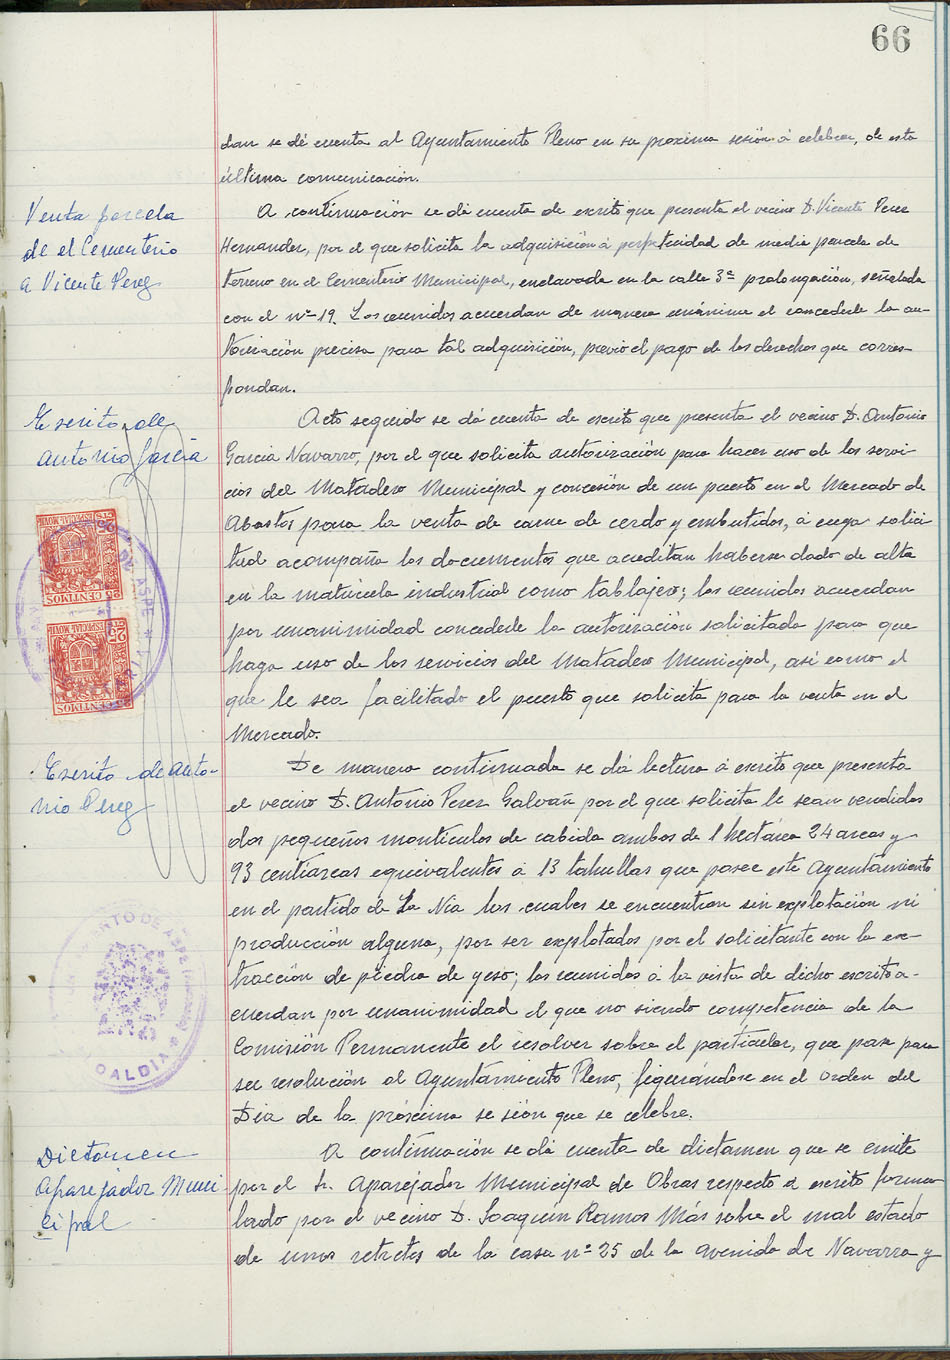 66
dan se dé cuenta al Ayuntamiento Pleno en su proxima sesión á celebrar, de esta
última comunicación.
Venta parcela
de el Cementerio
a Vicente Perez
A continuación se dá cuenta de escrito que presenta el vecino D. Vicente Perez
Hernandez, por el que solicita la adquisición á perpetuidad de media parcela de
terreno en el Cementerio Municipal, enclavada en la calle 3ª prolongación, señalada
con el nº 19. Los reunidos acuerdan de manera unánime el concederle la au-
torización precisa para tal adquisición, previo el pago de los derechos que corres-
pondan.
Escrito de
Antonio García
Acto seguido se dá cuenta de escrito que presenta el vecino D. Antonio
Garcia Navarro, por el que solicita autorización para hacer uso de los servi-
cios del Matadero Municipal y concesión de un puesto en el Mercado de
Abastos para la venta de carne de cerdo y embutidos, á cuya solici
tud acompaña los documentos que acreditan haberse dado de alta
en la matrícula industrial como tablajero; los reunidos acuerdan
por unanimidad concederle la autorización solicitada para que
haga uso de los servicios del Matadero Municipal, así como el
que le sea facilitado el puesto que solicita para la venta en el
Mercado.
ESPECIAL MOVIL
25 CENTIMOS
ESPECIAL MOVIL
25 CENTIMOS
DE ASPE
Escrito de Anto-
nio Perez
De manera continuada se dá lectura á escrito que presenta
el vecino D. Antonio Perez Galvañ por el que solicita le sean vendidos
dos pequeños montículos de cabida ambos de 1 hectárea 24 areas y
93 centiareas equivalentes á 13 tahullas que posee este Ayuntamiento
en el partido de La Nia los cuales se encuentran sin explotación ni
producción alguna, por ser explotados por el solicitante con la ex-
tracción de piedra de yeso; los reunidos á la vista de dicho escrito a-
cuerdan por unanimidad el que no siendo competencia de la
Comisión Permanente el resolver sobre el particular, que pase para
su resolución al Ayuntamiento Pleno, figurándose en el orden del
Dia de la próxima se sión que se celebre.
NTO DE ASPE
ALCALDIA
Dictamen
Aparejador Muni
cipal
A continuación se dá cuenta de dictamen que se emite
por el Sr. Aparejador Municipal de Obras respecto á escrito formu
lado por el vecino D. Joaquín Ramos Más sobre el mal estado
de unos retretes de la casa nº 25 de la Avenida de Navarra y